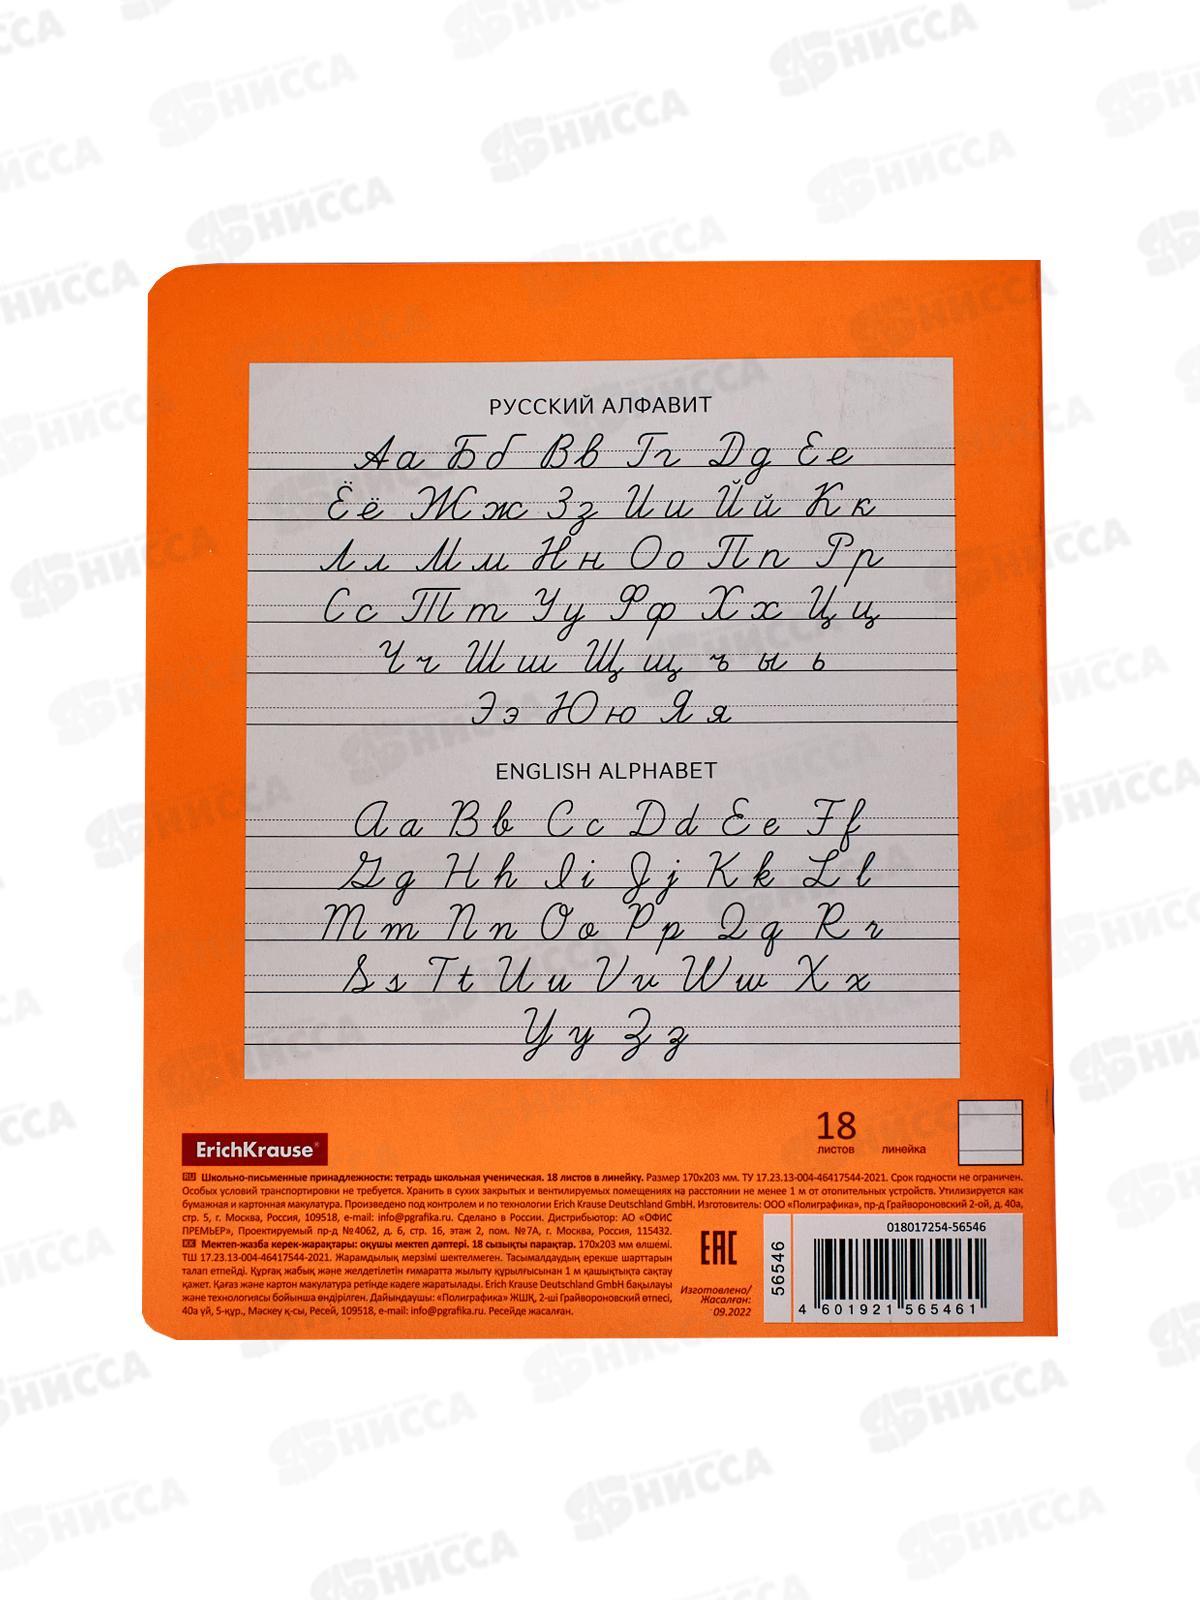 РУССКИЙ АЛФАВИТ
Аа Бб Вв Гг Дд Ее
Ёё Жж Зз Ии Йй Кк
Лл Мм Нн Оо Пп Рр
Сс Тт Уу Фф Хх Цц
Чч Шш Щщ ъ ы ь
Ээ Юю Яя
ENGLISH ALPHABET
Aa Bb Cc Dd Ee Ff
Gg Hh Ii Jj Kk Ll
Mm Nn Oo Pp Qq Rr
Ss Tt Uu Vv Ww Xx
Yy Zz
18
листов линейка
ErichKrause®
RU Школьно-письменные принадлежности: тетрадь школьная ученическая. 18 листов в линейку. Размер 170х203 мм. ТУ 17.23.13-004-46417544-2021. Срок годности не ограничен.
Особых условий транспортировки не требуется. Хранить в сухих закрытых и вентилируемых помещениях на расстоянии не менее 1 м от отопительных устройств. Утилизируется как
бумажная и картонная макулатура. Произведено под контролем и по технологии Erich Krause Deutschland GmbH. Изготовитель: ООО «Полиграфика», пр-д Грайвороновский 2-ой, д. 40а,
стр. 5, г. Москва, Россия, 109518, e-mail: info@pgrafika.ru. Сделано в России. Дистрибьютор: АО «ОФИС
ПРЕМЬЕР», Проектируемый пр-д №4062, д. 6, стр. 16, этаж 2, пом. №7А, г. Москва, Россия, 115432.
KK Мектеп-жазба керек-жарақтары: оқушы мектеп дәптері. 18 сызықты парақтар. 170х203 мм өлшемі.
ТШ 17.23.13-004-46417544-2021. Жарамдылық мерзімі шектелмеген. Тасымалдаудың ерекше шарттарын
талап етпейді. Құрғақ жабық және желдетілетін ғимаратта жылыту құрылғысынан 1 м қашықтықта сақтау
қажет. Қағаз және картон макулатура ретінде кәдеге жаратылады. Erich Krause Deutschland GmbH бақылауы
және технологиясы бойынша өндірілген. Дайындаушы: «Полиграфика» ЖШҚ, 2-ші Грайвороновский өтпесі,
40а үй, 5-құр., Мәскеу қ-сы, Ресей, 109518, e-mail: info@pgrafika.ru. Ресейде жасалған.
EAC
Изготовлено/
Жасалған:
09.2022
56546
018017254-56546
4 601921 565461